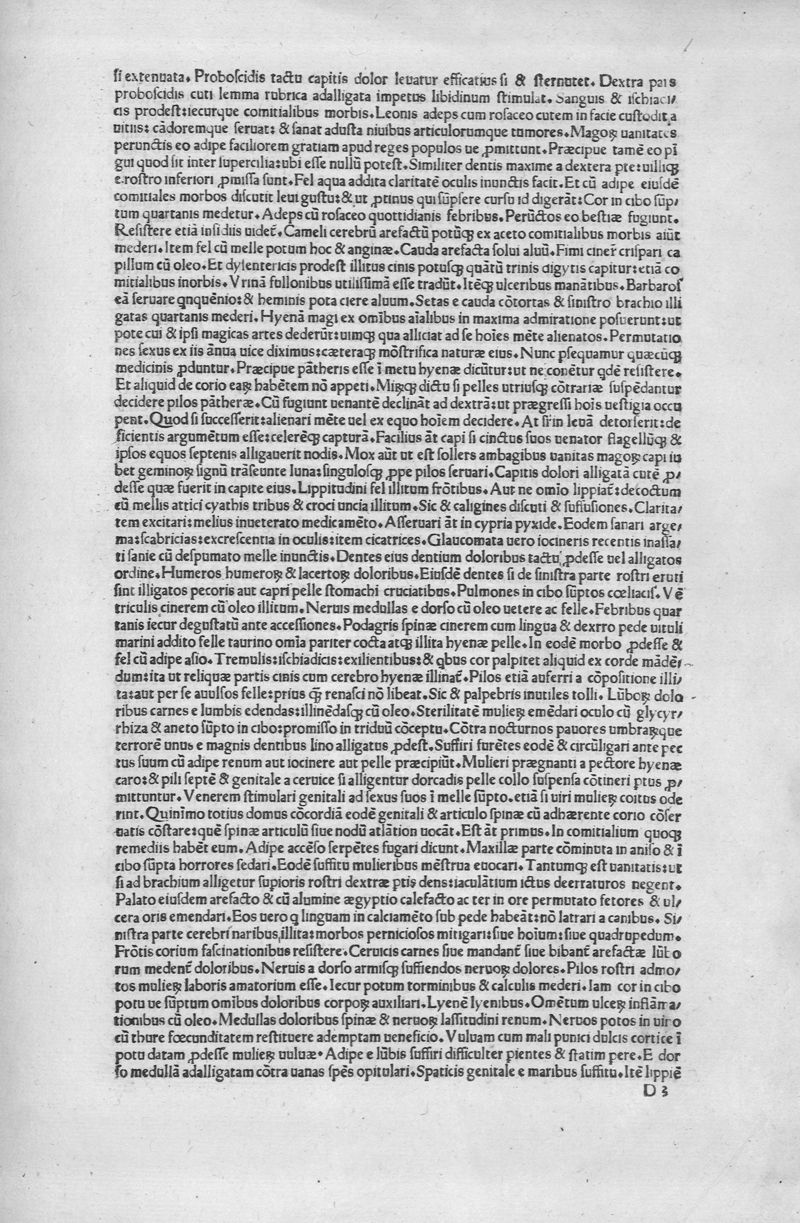 ſi extenuata. Proboſcidis tactu capitis dolor leuatur efficatius ſi & ſternutet. Dextra pars
proboſcidis cuti lemma rubrica adalligata impetus libidinum ſtimulat. Sanguis & iſchiaci/
cis prodeſt: iecurque comitialibus morbis. Leonis adeps cum roſaceo cutem in facie cuſtodit a
uitiis: cādoremque ſeruat: & ſanat aduſta niuibus articulorumque tumores. Magoꝝ uanitates
perunctis eo adipe faciliorem gratiam apud reges populos ue ꝓmittunt. Præcipue tamē eo pī
gui quod ſit inter ſupercilia: ubi eſſe nullū poteſt. Similiter dentis maxime a dextera pte: uilliqꝫ
e roſtro inferiori ꝓmiſſa ſunt. Fel aqua addita claritatē oculis inunctis facit. Et cū adipe eiuſdē
comitiales morbos diſcutit leui guſtu: & ut ꝓtinus qui ſūpſere curſu id digerāt: Cor in cibo ſūp/
tum quartanis medetur. Adeps cū roſaceo quottidianis febribus. Perūctos eo beſtiæ fugiunt.
Reſiſtere etiā inſidiis uidet̄. Cameli cerebrū arefactū potūqꝫ ex aceto comitialibus morbis aiūt
mederi. Item fel cū melle potum hoc & anginæ. Cauda arefacta ſolui aluū. Fimi cinere criſpari ca
pillum cū oleo. Et dyſentericis prodeſt illitus cinis potuſqꝫ quātū trinis digytis capitur: etiā co
mitialibus morbis. Vrinā fullonibus utiliſſimā eſſe tradūt. Itēqꝫ ulceribus manātibus. Barbaroſ
eā ſeruare qnquēnio: & heminis pota ciere aluum. Setas e cauda cōtortas & ſiniſtro brachio illi
gatas quartanis mederi. Hyenā magi ex omībus aīalibus in maxima admiratione poſuerunt: ut
pote cui & ipſi magicas artes dederūt: uimqꝫ qua alliciat ad ſe hoīes mēte alienatos. Permutatio
nes ſexus ex iis ānua uice diximus: cæteraqꝫ mōſtrifica naturæ eius. Nunc pſequamur quæcūqꝫ
medicinis ꝓduntur. Præcipue pātheris eſſe ī metu hyenæ dicūtur: ut ne conētur qdē reſiſtere.
Et aliquid de corio eaꝝ habētem nō appeti. Miꝝqꝫ dictu ſi pelles utriuſqꝫ cōtrariæ ſuſpēdantur
decidere pilos pātheræ. Cū fugiunt uenantē declināt ad dextrā: ut prægreſſi hoīs ueſtigia occu
pent. Quod ſi ſucceſſerit: alienari mēte uel ex equo hoīem decidere. At ſi in leuā detorſerit: de
ficientis argumētum eſſe: celerēqꝫ capturā. Facilius āt capi ſi cinctus ſuos uenator flagellūqꝫ &
ipſos equos ſeptenis alligauerit nodis. Mox aūt ut eſt ſollers ambagibus uanitas magoꝝ capi iu
bet geminoꝝ ſignū trāſeunte luna: ſinguloſqꝫ ꝓpe pilos ſeruari. Capitis dolori alligatā cutē ꝓ/
deſſe quæ fuerit in capite eius. Lippitudini fel illitum frōtibus. Aut ne omīo lippiat̄: decoctum
cū mellis attici cyathis tribus & croci uncia illitum. Sic & caligines diſcuti & ſuffuſiones. Clarita/
tem excitari: melius inueterato medicamēto. Aſſeruari āt in cypria pyxide. Eodem ſanari arge/
ma: ſcabricias: excreſcentia in oculis: item cicatrices. Glaucomata uero iocineris recentis inaſſa/
ti ſanie cū deſpumato melle inunctis. Dentes eius dentium doloribus tactu ꝓdeſſe uel alligatos
ordine. Humeros humeroꝝ & lacertoꝝ doloribus. Eiuſdē dentes ſi de ſiniſtra parte roſtri eruti
ſint illigatos pecoris aut capri pelle ſtomachi cruciatibus. Pulmones in cibo ſūptos cœliaciſ. Vē
triculis cinerem cū oleo illitum. Neruis medullas e dorſo cū oleo uetere ac felle. Febribus quar
tanis iecur deguſtatū ante acceſſiones. Podagris ſpinæ cinerem cum lingua & dextro pede uituli
marini addito felle taurino omīa pariter cocta atqꝫ illita hyenæ pelle. In eodē morbo ꝓdeſſe &
fel cū adipe aſio. Tremulis: iſchiadicis: exilientibus: & qbus cor palpitet aliquid ex corde mādē/
dum: ita ut reliquæ partis cinis cum cerebro hyenæ illinat̄. Pilos etiā auferri a cōpoſitione illi/
ta: aut per ſe auulſos felle: prius qꝫ renaſci nō libeat. Sic & palpebris inutiles tolli. Lūboꝝ dolo
ribus carnes e lumbis edendas: illinēdaſqꝫ cū oleo. Sterilitatē mulieꝝ emēdari oculo cū glycyr/
rhiza & aneto ſūpto in cibo: promiſſo in triduū cōceptu. Cōtra nocturnos pauores umbraꝝque
terrorē unus e magnis dentibus lino alligatus ꝓdeſt. Suffiri furētes eodē & circūligari ante pec
tus ſuum cū adipe renum aut iocinere aut pelle præcipiūt. Mulieri prægnanti a pectore hyenæ
caro: & pili ſeptē & genitale a ceruice ſi alligentur dorcadis pelle collo ſuſpenſa cōtineri ptus ꝓ/
mittuntur. Venerem ſtimulari genitali ad ſexus ſuos ī melle ſūpto. etiā ſi uiri mulieꝝ coitus ode
rint. Quinīmo totius domus cōcordiā eodē genitali & articulo ſpinæ cū adhærente corio cōſer
uatis cōſtare: quē ſpinæ articulū ſiue nodū atlātion uocāt. Eſt āt primus. In comitialium quoqꝫ
remediis habēt eum. Adipe accēſo ſerpētes fugari dicunt. Maxillæ parte cōminuta in aniſo & ī
cibo ſūpta horrores ſedari. Eodē ſuffitu mulieribus mēſtrua euocari. Tantumqꝫ eſt uanitatis: ut
ſi ad brachium alligetur ſupioris roſtri dextræ ptis dens: iaculātium ictus deerraturos negent.
Palato eiuſdem arefacto & cū alumine ægyptio calefacto ac ter in ore permutato fetores & ul/
cera oris emendari. Eos uero q linguam in calciamēto ſub pede habeāt: nō latrari a canibus. Si/
niſtra parte cerebri naribus illita: morbos pernicioſos mitigari: ſiue hoīum: ſiue quadrupedum.
Frōtis corium faſcinationibus reſiſtere. Ceruicis carnes ſiue mandant̄ ſiue bibant̄ arefactæ lūbo
rum medent̄ doloribus. Neruis a dorſo armiſqꝫ ſuffiendos neruoꝝ dolores. Pilos roſtri admo/
tos mulieꝝ labris amatorium eſſe. Iecur potum torminibus & calculis mederi. Iam cor in cibo
potu ue ſūptum omībus doloribus corpoꝝ auxiliari. Lyenē lyenibus. Omētum ulceꝝ inflāma/
tionibus cū oleo. Medullas doloribus ſpinæ & neruoꝝ laſſitudini renum. Neruos potos in uiro
cū thure fœcunditatem reſtituere ademptam ueneficio. Vuluam cum mali punici dulcis cortice ī
potu datam ꝓdeſſe mulieꝝ uuluæ. Adipe e lūbis ſuffiri difficulter pientes & ſtatim pere. E dor
ſo medullā adalligatam cōtra uanas ſpēs opitulari. Spaticis genitale e maribus ſuffitu. Itē lippiē
D 3